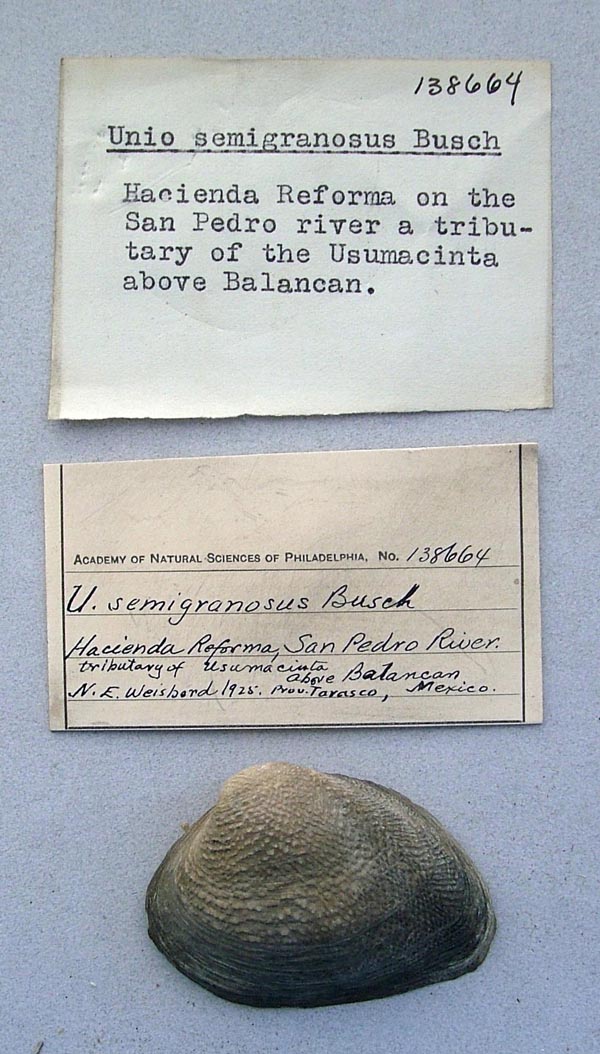 138664
Unio semigranosus Busch
Hacienda Reforma on the
San Pedro river a tribu-
tary of the Usumacinta
above Balancan.
ACADEMY OF NATURAL SCIENCES OF PHILADELPHIA, No. 138664
U. semigranosus Busch
Hacienda Reforma, San Pedro River.
tributary of Usumacinta above Balancan
N. E. Weisbord 1925. Prov. Tarasco, Mexico.